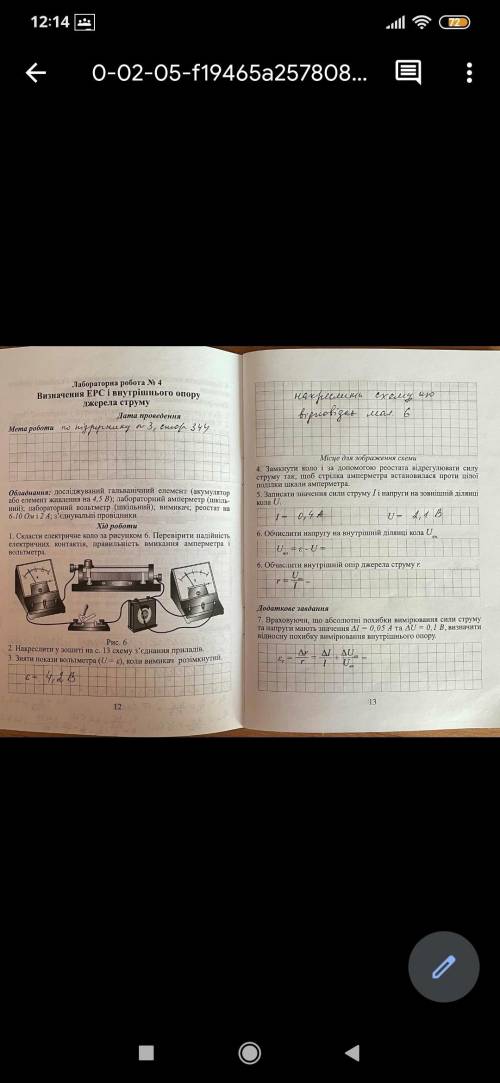 12:14
72
0-02-05-f19465a257808...
Лабораторна робота № 4
Визначення ЕРС і внутрішнього опору
джерела струму
Дата проведення
Мета роботи по підручнику № 3, стор 344
Обладнання: досліджуваний гальванічний елемент (акумулятор
або елемент живлення на 4,5 В); лабораторний амперметр (шкіль-
ний); лабораторний вольтметр (шкільний); вимикач; реостат на
6-10 Ом і 2 А; з'єднувальні провідники.
Хід роботи
1. Скласти електричне коло за рисунком 6. Перевірити надійність
електричних контактів, правильність вмикання амперметра і
вольтметра.
Рис. 6
2. Накреслити у зошиті на с. 13 схему з'єднання приладів.
3. Зняти покази вольтметра (U = ε), коли вимикач розімкнутий.
ε = 4,2 В
12
накреслити схему
відповідає мал 6
Місце для зображення схеми
4. Замкнути коло і за допомогою реостата відрегулювати силу
струму так, щоб стрілка амперметра встановилася проти цілої
поділки шкали амперметра.
5. Записати значення сили струму I і напруги на зовнішній ділянці
кола U.
I = 0,4 А U = 2,1 В
6. Обчислити напругу на внутрішній ділянці кола Uвн
Uвн = ε - U =
6. Обчислити внутрішній опір джерела струму r.
r = Uвн/I =
Додаткове завдання
7. Враховуючи, що абсолютні похибки вимірювання сили струму
та напруги мають значення ΔI = 0,05 А та ΔU = 0,1 В, визначити
відносну похибку вимірювання внутрішнього опору.
εr = Δr/r = ΔI/I + ΔUвн/Uвн =
13